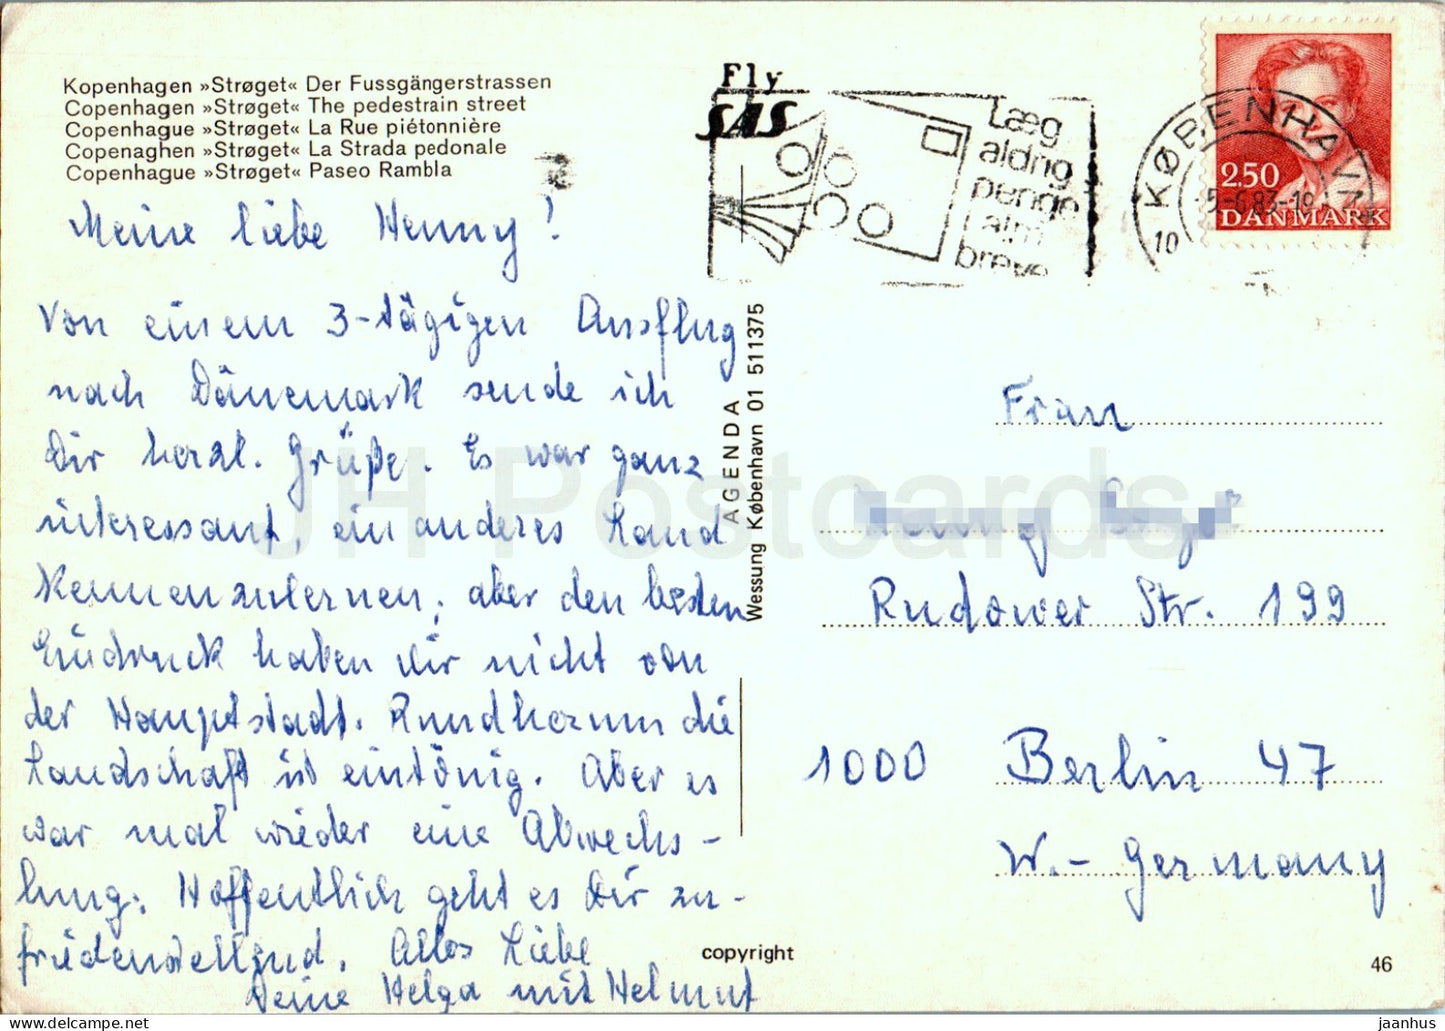 Kopenhagen »Strøget« Der Fussgängerstrassen
Copenhagen »Strøget« The pedestrain street
Copenhague »Strøget« La Rue piétonnière
Copenaghen »Strøget« La Strada pedonale
Copenhague »Strøget« Paseo Rambla
Meine liebe Henny!
Von einem 3-tägigen Ausflug
nach Dänemark sende ich
Dir herzl. Grüße. Es war ganz
interessant, ein anderes Land
kennenzulernen, aber den besten
Eindruck haben wir nicht von
der Hauptstadt. Rundherum die
Landschaft ist eintönig. Aber es
war mal wieder eine Abwechs-
lung. Hoffentlich geht es Dir zu-
friedenstellend. Alles Liebe
Deine Helga mit Helmut
AGENDA
Wessung København 01 511375
copyright
Fly
SAS
Læg
aldrig
penge
i alm.
breve
KØBENHAVN
10
2.50
DANMARK
Frau
Rudower Str. 199
1000 Berlin 47
W.-Germany
46
JH Postcards
jaanhus — https://www.delcampe.net